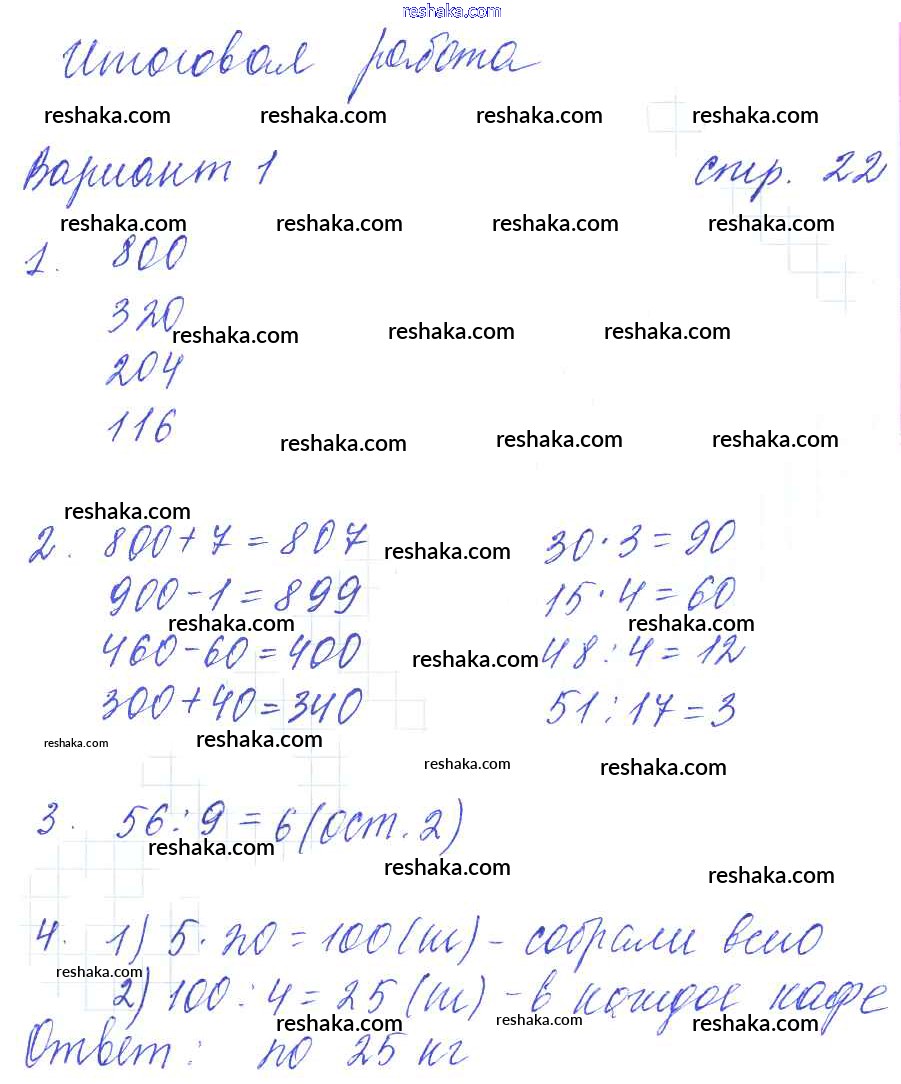 reshaka.com
Итоговая работа
reshaka.com reshaka.com reshaka.com reshaka.com
Вариант 1 стр. 22
reshaka.com reshaka.com reshaka.com reshaka.com
1. 800
320
reshaka.com reshaka.com reshaka.com
204
116
reshaka.com reshaka.com reshaka.com
reshaka.com
2. 800+7=807 30·3=90
reshaka.com
900-1=899 15·4=60
reshaka.com reshaka.com
460-60=400 48:4=12
reshaka.com
300+40=340 51:17=3
reshaka.com reshaka.com reshaka.com reshaka.com
3. 56:9=6(ост.2)
reshaka.com reshaka.com reshaka.com
4. 1) 5·20=100(ш) - собрали всего
reshaka.com
2) 100:4=25(ш) - в каждое кафе
reshaka.com reshaka.com reshaka.com
Ответ: по 25 кг